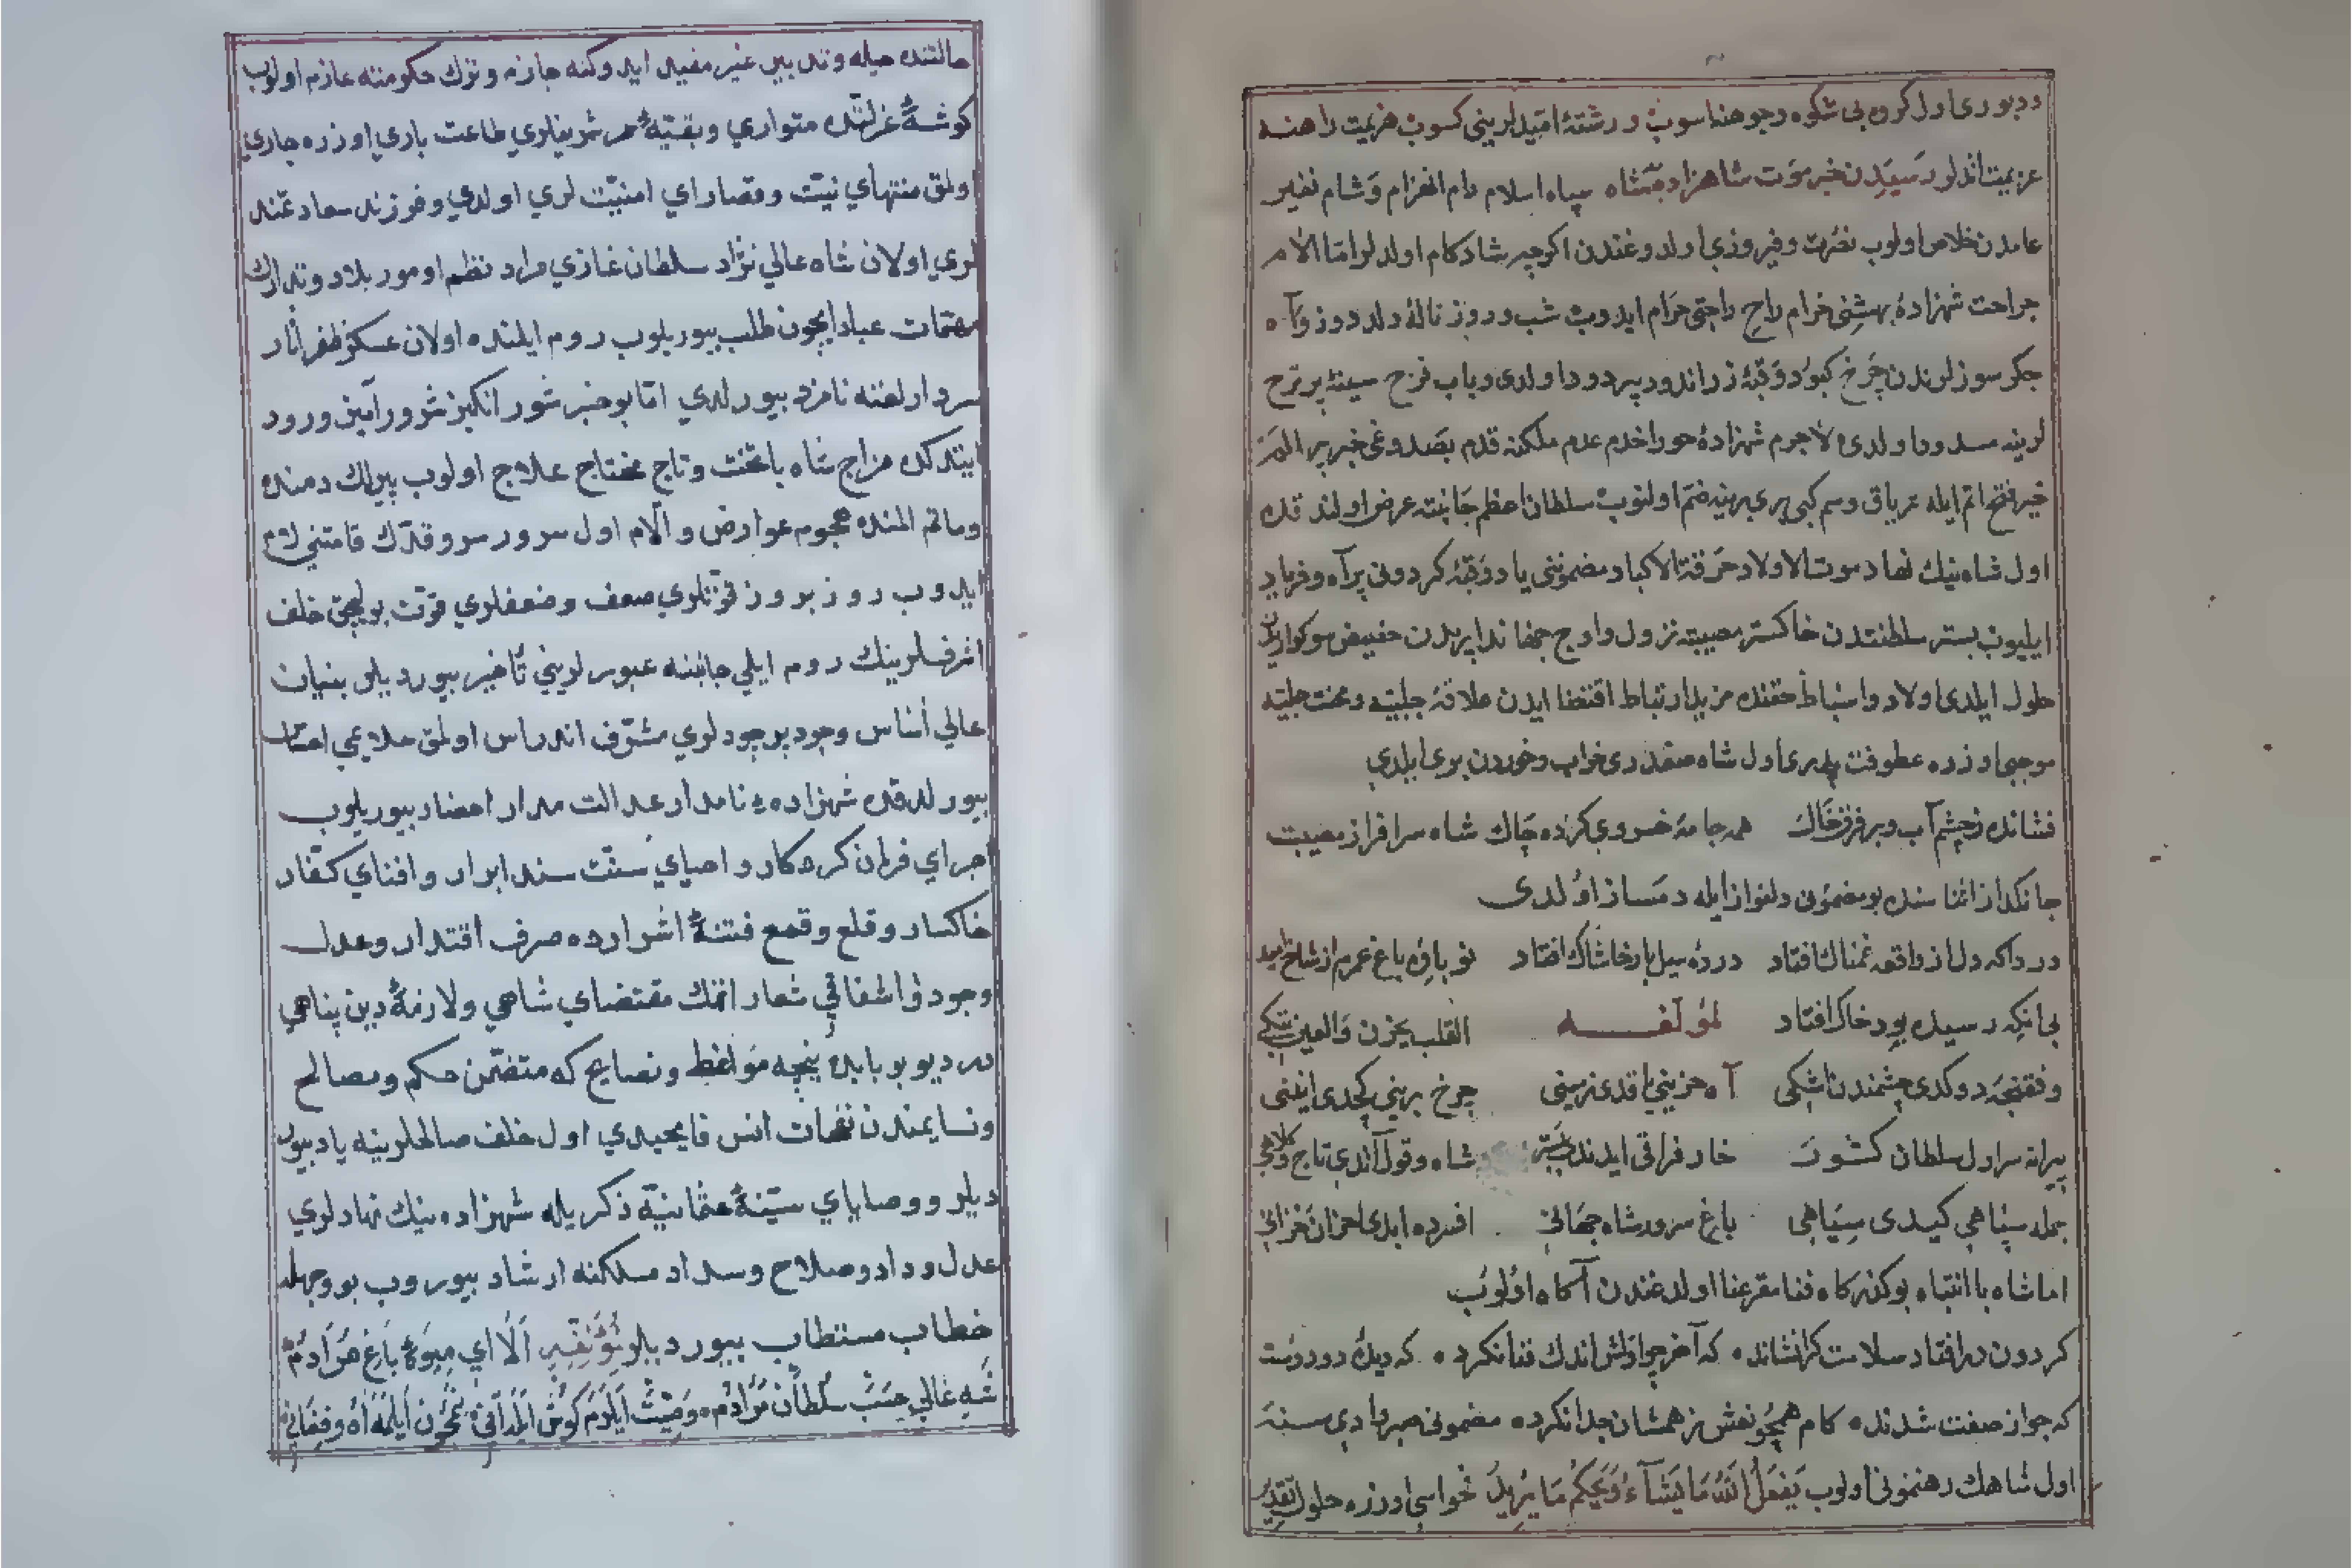 اول كروه بی شكوه
عزيمت ايتديلر رسيدن خبر موت شاهزاده بشاه سپاه اسلام دام انهزام و شام نفير
عامدن خلاص اولوب نصرت و فيروزی اولدوغندن اكرچه شادكام اولديلر اما آلام
جراحت شهزادهٔ بهشتی خرام راحتی حرام ايدوب شب و روز نالهٔ دلدوز و آه
جكر سوزلرندن چرخ كبود و قبهٔ زراندود پر دود اولدی و باب فرح سينهٔ پر ترح
لرينه مسدود اولدی لاجرم شهزادهٔ حورا خدم عدم ملكنه قدم بصدوغی خبر پر الم
خبر فتح اتم ايله ترياق و سم كبی بری برينه ضم اولنوب سلطان اعظم جانبنه عرض اولندقده
اول شاه نيك نهاد موت الاولاد حرقة الاكباد مضمونی ياد و قبهٔ كردونی پر آه و فرياد
ايليوب بستر سلطنتدن خاكستر مصيبته نزول و اوج جهاندن حضيض
حلول ايلدی اولاد و اسباط حقنده مزيد ارتباط اقتضا ايدن علاقهٔ جبليه و محبت جليه
موجبی اوزره عطوفت پدری اول شاه صفدری خواب و خوردن بری ايلدی
فشانده ز چشم آب و بر فرق خاك همه جامهٔ خسروی كرده چاك شاه سرافراز مصيبت
جانكداز اثناسنده بو مضمون دلنواز ايله دمساز اولدی
درداكه دل از واقعه غمناك افتاد در ره سيل بار خاشاك افتاد نو باوهٔ باغ عمرم از شاخ اميد
رسيده بود خاك افتاد لمؤلفه القلب يحزن والعين تبكی
دوكدی چشمندن اشكی آه حزينی ياقدی زمينی چرخ برينی
پيرانه سر اول سلطان كشور خار فراقی ايدندی بستر شاه و قول تاج و كلاهی
جمله سپاهی كيدی سياهی باغ سرور شاه جهانی افسرده ايدی
اما شاه با انتباه بو كذركاه فنا مقر عنا اولدغندن آكاه اولوب
كردون در افتاد سلامت كه آخر چو اولش اندك فنا نكرد كه ديك دو دوست
كه جواز صفت شدند كام همچو نعش ز همشان جدا نكرد مضمونی
اول شاهك رهنمونی اولوب يفعل الله ما يشاء ويحكم ما يريد فحواسی اوزره حلول تقدير
حالتنده حيله و تدبير غير مفيد ايدوكنه جازم و ترك حكومته عازم اولوب
كوشهٔ عزلتده متواری و بقيهٔ عمر شريفلری طاعت باری اوزره جاری
اولمق منتهای نيت و قصارای امنيت لری اولدی و فرزند سعادتمند
لری اولان شاه عالی نژاد سلطان غازی مراد نظم امور بلاد و تدارك
مهمات عباد ايچون طلب بيوريلوب روم ايلنده اولان عسكر ظفر آثار
سردارلغنه نامزد بيورلدی اما بو خبر شور انكيز شرور آميز ورود
ايتدكده مزاج شاه با تخت و تاج محتاج علاج اولوب پيرلك دمنده
و ماتم المنده هجوم عوارض و آلام اول سرور سرو قدك قامتنی لام
ايدوب روز بروز قوتلری ضعف و ضعفلری قوت بولیجق خلف
اشرفلرينك روم ايلی جانبنه عبورلرينی تأخير بيورديلر بنيان
عالی أساس وجود پر جودلری مشرف اندراس اولمق
بيورلدقده شهزادهٔ نامدار عدالت مدار احضار بيوريلوب
اجرای فرمان كردكار و احيای سنت سند ابرار و افنای كفار
خاكسار و قلع و قمع فتنهٔ اشرارده صرف اقتدار و عدل
وجود اتمك مقتضای شاهی و لازمهٔ دين پناهی
در ديو بو بابده نيجه مواعظ و نصايح كه متضمن حكم و مصالح
و نسايمندن نفحات انس فايحيدی اول خلف صالحلرينه ياد بيور
ديلر و وصايای سنيهٔ عثمانيه ذكريله شهزادهٔ نيك نهادلری
عدل و داد و صلاح و سداد مسلكنه ارشاد بيوروب بو وجهله
خطاب مستطاب بيورديلر الا ای ميوهٔ باغ مرادم
شه عالی حسب سلطان مرادم وصيت ايلرم كوش ايله آنی ايلمه آه و فغانی